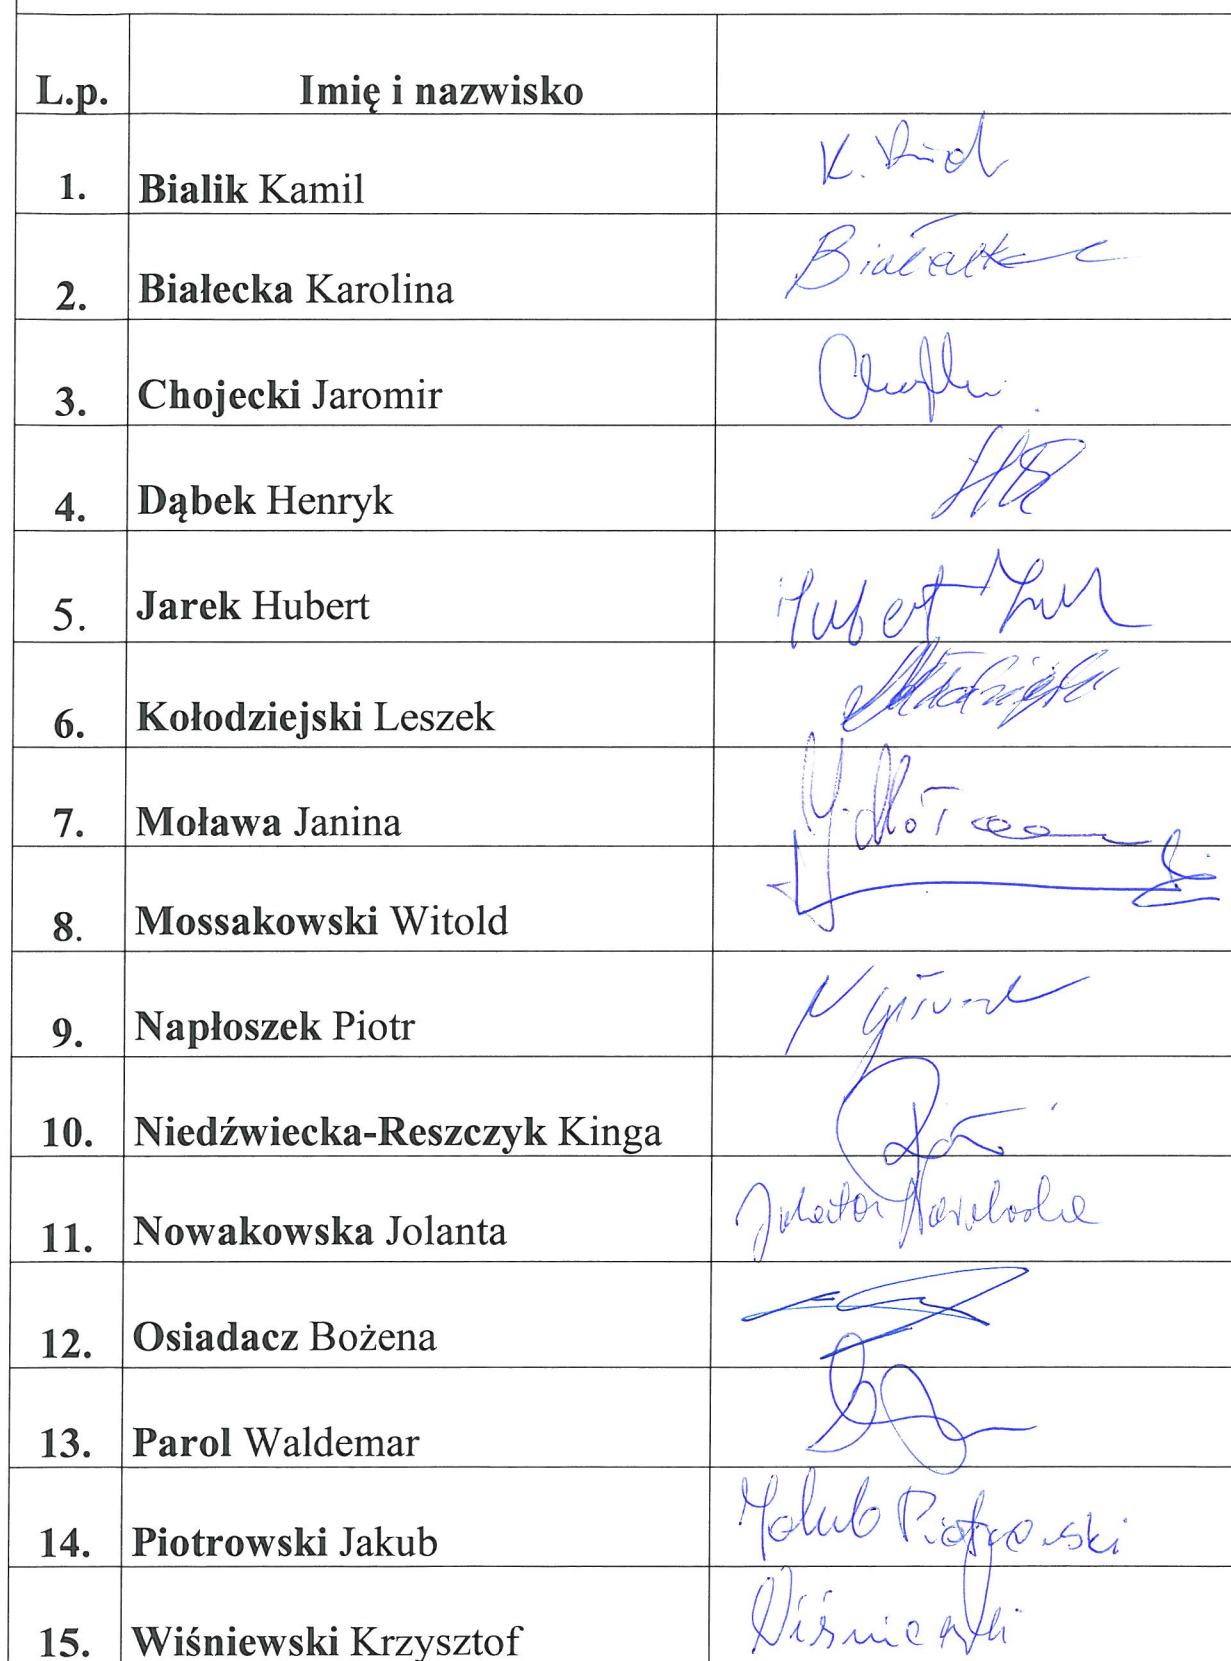 L.p. Imię i nazwisko
1. Bialik Kamil
2. Białecka Karolina
3. Chojecki Jaromir
4. Dąbek Henryk
5. Jarek Hubert Hubert
6. Kołodziejski Leszek
7. Moława Janina
8. Mossakowski Witold
9. Napłoszek Piotr
10. Niedźwiecka-Reszczyk Kinga
11. Nowakowska Jolanta Jolanta Nowakowska
12. Osiadacz Bożena
13. Parol Waldemar
14. Piotrowski Jakub Jakub Piotrowski
15. Wiśniewski Krzysztof Wiśniewski